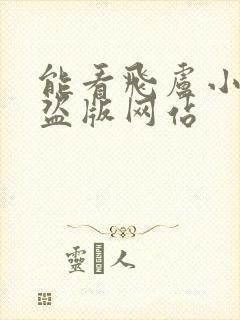 能看飛盧小
盜版网佔
靈 人